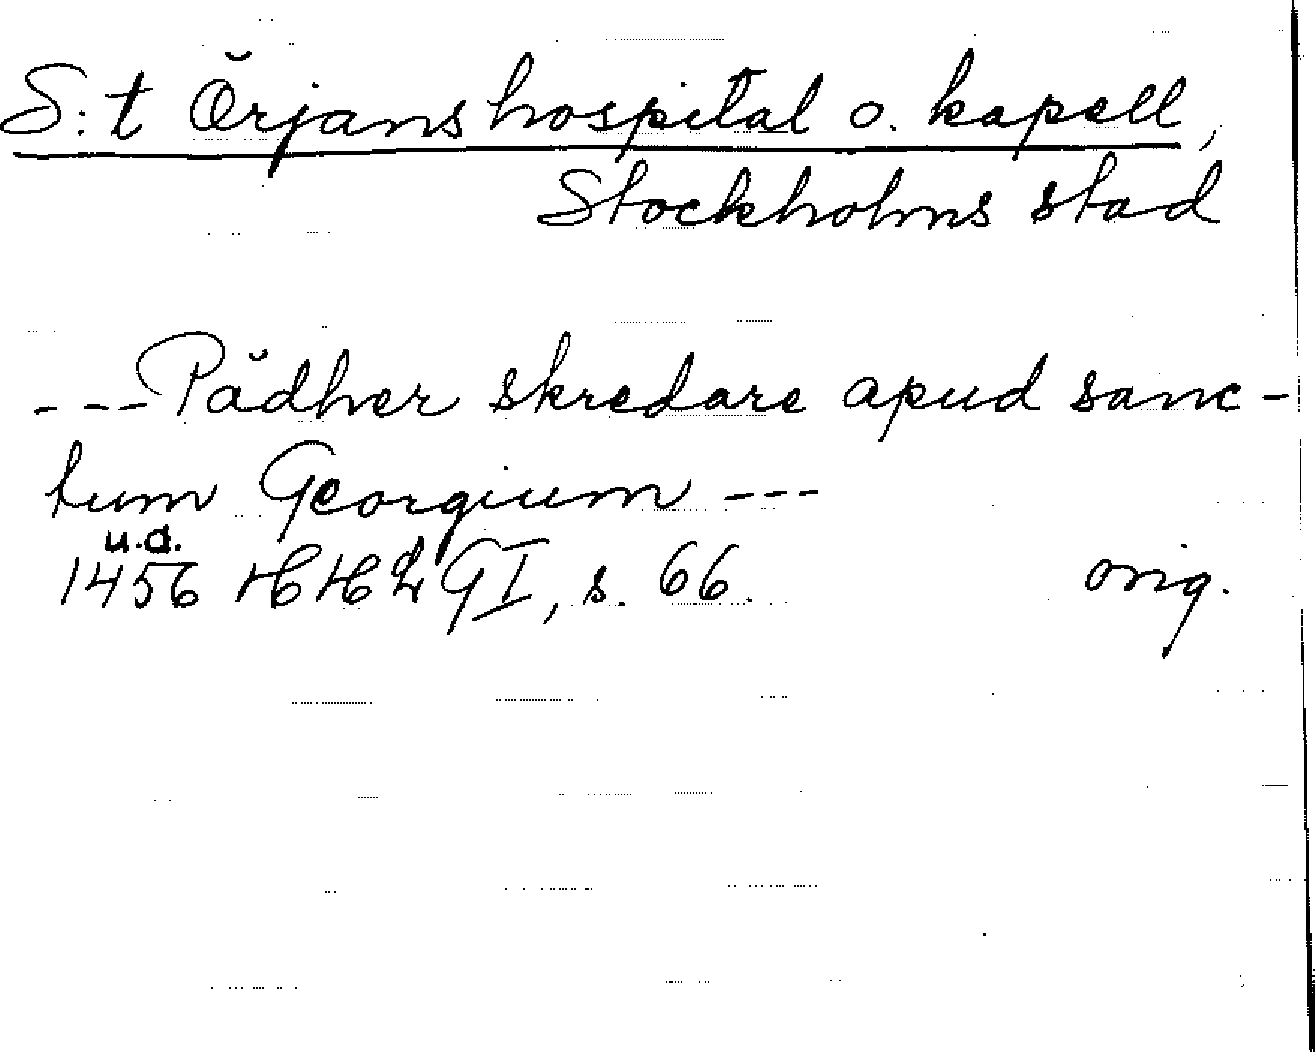 S:t Örjans hospital o. kapell,
Stockholms stad
---Pädher skredare apud sanc-
tum Georgium ---
u.d.
1456 HHLGI, s. 66. orig.